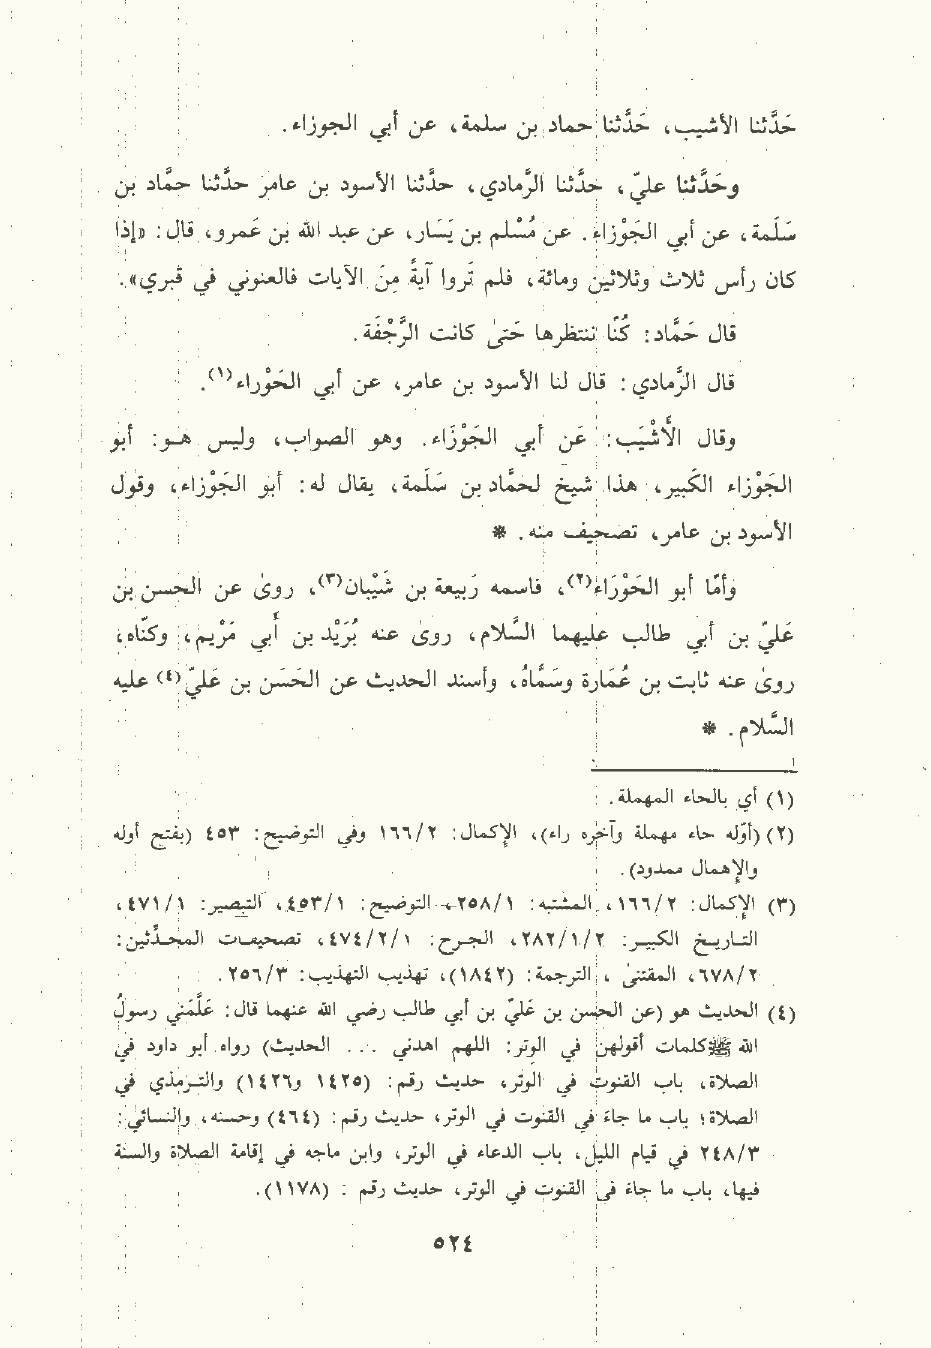 حَدَّثنا الأشيب، حَدَّثنا حماد بن سلمة، عن أبي الجوزاء.
وحَدَّثنا عليّ، حدَّثنا الرَّمادي، حدَّثنا الأسود بن عامر حدَّثنا حمَّاد بن
سَلَمة، عن أبي الجَوْزاء. عن مُسْلم بن يَسَار، عن عبد الله بن عَمرو، قال: «إذا
كان رأس ثلاث وثلاثين ومائة، فلم تَروا آيةً مِنَ الآيات فالعنوني في قبري».
قال حَمَّاد: كُنّا ننتظرها حَتىٰ كانت الرَّجْفَة.
قال الرَّمادي: قال لنا الأسود بن عامر، عن أبي الحَوْراء(١).
وقال الأَشْيَب: عَن أبي الجَوْزَاء. وهو الصواب، وليس هـو: أبو
الجَوْزاء الكَبير، هذا شيخ لحمَّاد بن سَلَمة، يقال له: أبو الجَوْزاء، وقول
الأسود بن عامر، تصحيف منه. *
وأمّا أبو الحَوْرَاء(٢)، فاسمه رَبيعة بن شَيْبان(٣)، روىٰ عن الحسن بن
عَليّ بن أبي طالب عليهما السَّلام، روىٰ عنه بُرَيْد بن أَبي مَرْيم، وكنّاه،
روىٰ عنه ثابت بن عُمَارة وسَمَّاهُ، وأسند الحديث عن الحَسَن بن عَليّ(٤) عليه
السَّلام. *
(١) أي بالحاء المهملة.
(٢) (أوّله حاء مهملة وآخره راء)، الإكمال: ١٦٦/٢ وفي التوضيح: ٤٥٣ (بفتح أوله
والإهمال ممدود).
(٣) الإكمال: ١٦٦/٢، المشتبه: ٢٥٨/١، التوضيح: ٤٥٣/١، التبصير: ٤٧١/١،
التـاريـخ الكبيـر: ٢٨٢/١/٢، الجـرح: ٤٧٤/٢/١، تصحيفـات المحـدِّثين:
٦٧٨/٢، المقتنىٰ، الترجمة: (١٨٤٢)، تهذيب التهذيب: ٢٥٦/٣.
(٤) الحديث هو (عن الحسن بن عَليّ بن أبي طالب رضي الله عنهما قال: عَلَّمَني رسولُ
الله ﷺ كلمات أقولهن في الوتر: اللهم اهدني ... الحديث) رواه أبو داود في
الصلاة، باب القنوت في الوتر، حديث رقم: (١٤٢٥ و١٤٢٦) والتـرمذي في
الصلاة؛ باب ما جاءَ في القنوت في الوتر، حديث رقم: (٤٦٤) وحسنه، والنسائي:
٢٤٨/٣ في قيام الليل، باب الدعاء في الوتر، وابن ماجه في إقامة الصلاة والسنة
فيها، باب ما جاءَ في القنوت في الوتر، حديث رقم : (١١٧٨).
٥٢٤